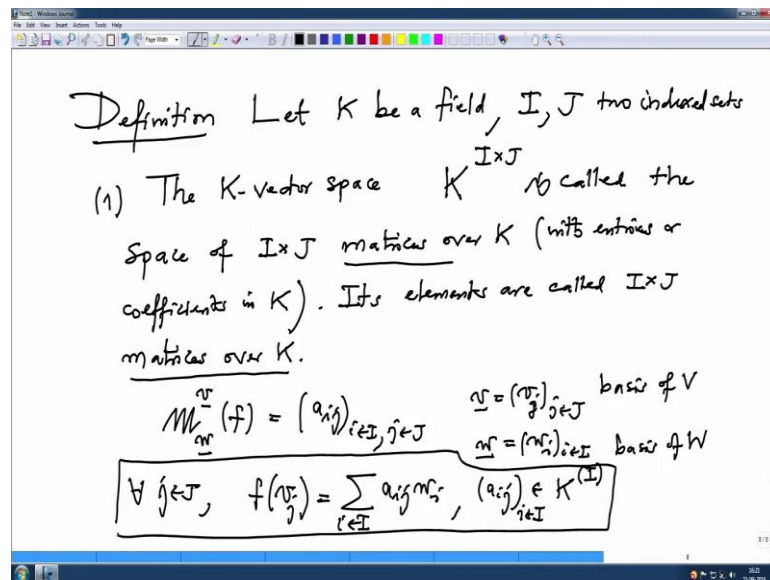 Note1 - Windows Journal
File Edit View Insert Actions Tools Help
Page Width
Definition Let K be a field, I, J two indexed sets
(1) The K-vector space K^{I×J} is called the
space of I×J matrices over K (with entries or
coefficients in K). Its elements are called I×J
matrices over K.
M^{v}_{w}(f) = (a_{ij})_{i∈I, j∈J} v = (v_j)_{j∈J} basis of V
w = (w_i)_{i∈I} basis of W
∀ j∈J, f(v_j) = ∑_{i∈I} a_{ij} w_i, (a_{ij})_{i∈I} ∈ K^{(I)}
8
16:21